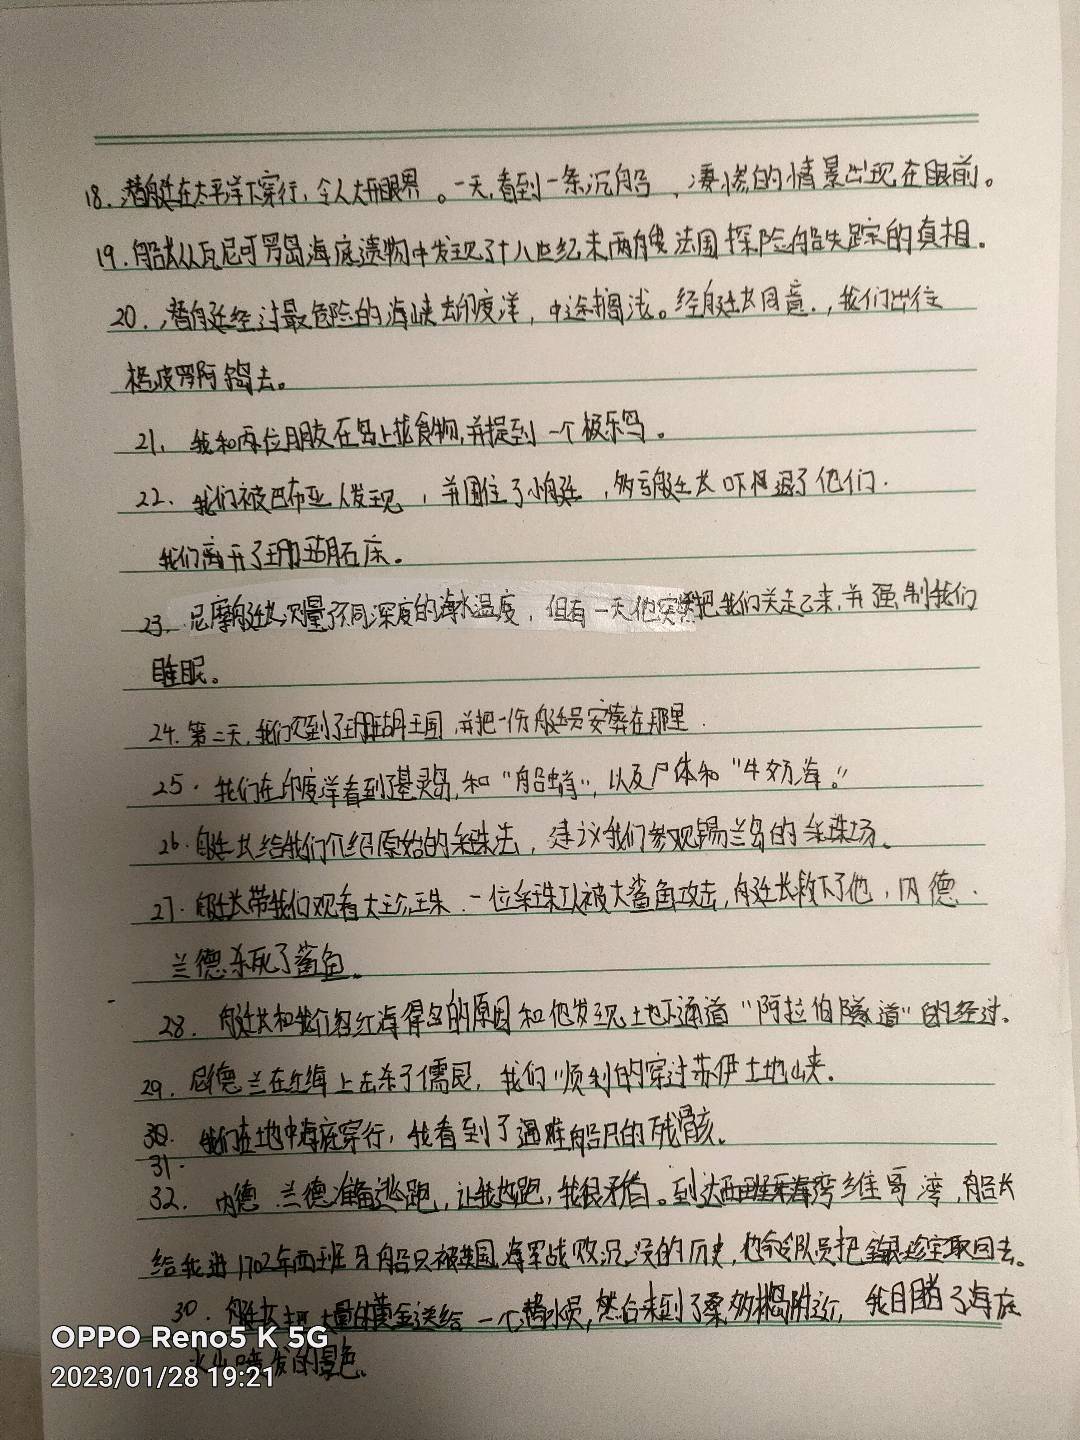 18. 潜艇在太平洋下穿行，令人大开眼界。一天，看到一条沉船，凄惨的情景出现在眼前。
19. 船长从瓦尼可罗岛海底遗物中发现了十八世纪末两艘法国探险船失踪的真相。
20. 潜艇经过最危险的海峡去印度洋，中途搁浅。经艇长同意，我们出往
格波罗阿岛去。
21. 我和两位朋友在岛上找食物，并捉到一个极乐鸟。
22. 我们被巴布亚人发现，并围住了小艇，多亏艇长吓退了他们.
我们离开了珊瑚石床。
23. 尼摩艇长测量了不同深度的海水温度，但有一天他突然把我们关起来，并强制我们
睡眠。
24. 第二天，我们见到了珊瑚王国，并把一份艇员安葬在那里.
25. 我们在印度洋看到了基灵岛，和"船蛸"，以及尸体和"牛奶海。"
26. 艇长给我们介绍原始的采珠法，建议我们参观锡兰岛的采珠场。
27. 艇长带我们观看大珍珠.一位采珠人被大鲨鱼攻击，艇长救下了他，内德.
兰德杀死了鲨鱼。
28. 艇长和我介绍红海得名的原因和他发现地下通道"阿拉伯隧道"的经过.
29. 尼德兰在红海上击杀了儒艮，我们顺利的穿过苏伊士地峡.
30. 我们在地中海底穿行，我看到了遇难船只的残骸.
31.
32. 内德.兰德准备逃跑，让我也跑，我很矛盾。到达西班牙海湾维哥湾，船长
给我讲1702年西班牙船只被英国海军战败沉没的历史，他命令队员把金银珍宝取回去。
30. 艇长把大量的黄金送给一个潜水员，然后来到了桑多林岛附近，我目睹了海底
火山喷发的景色.
OPPO Reno5 K 5G
2023/01/28 19:21